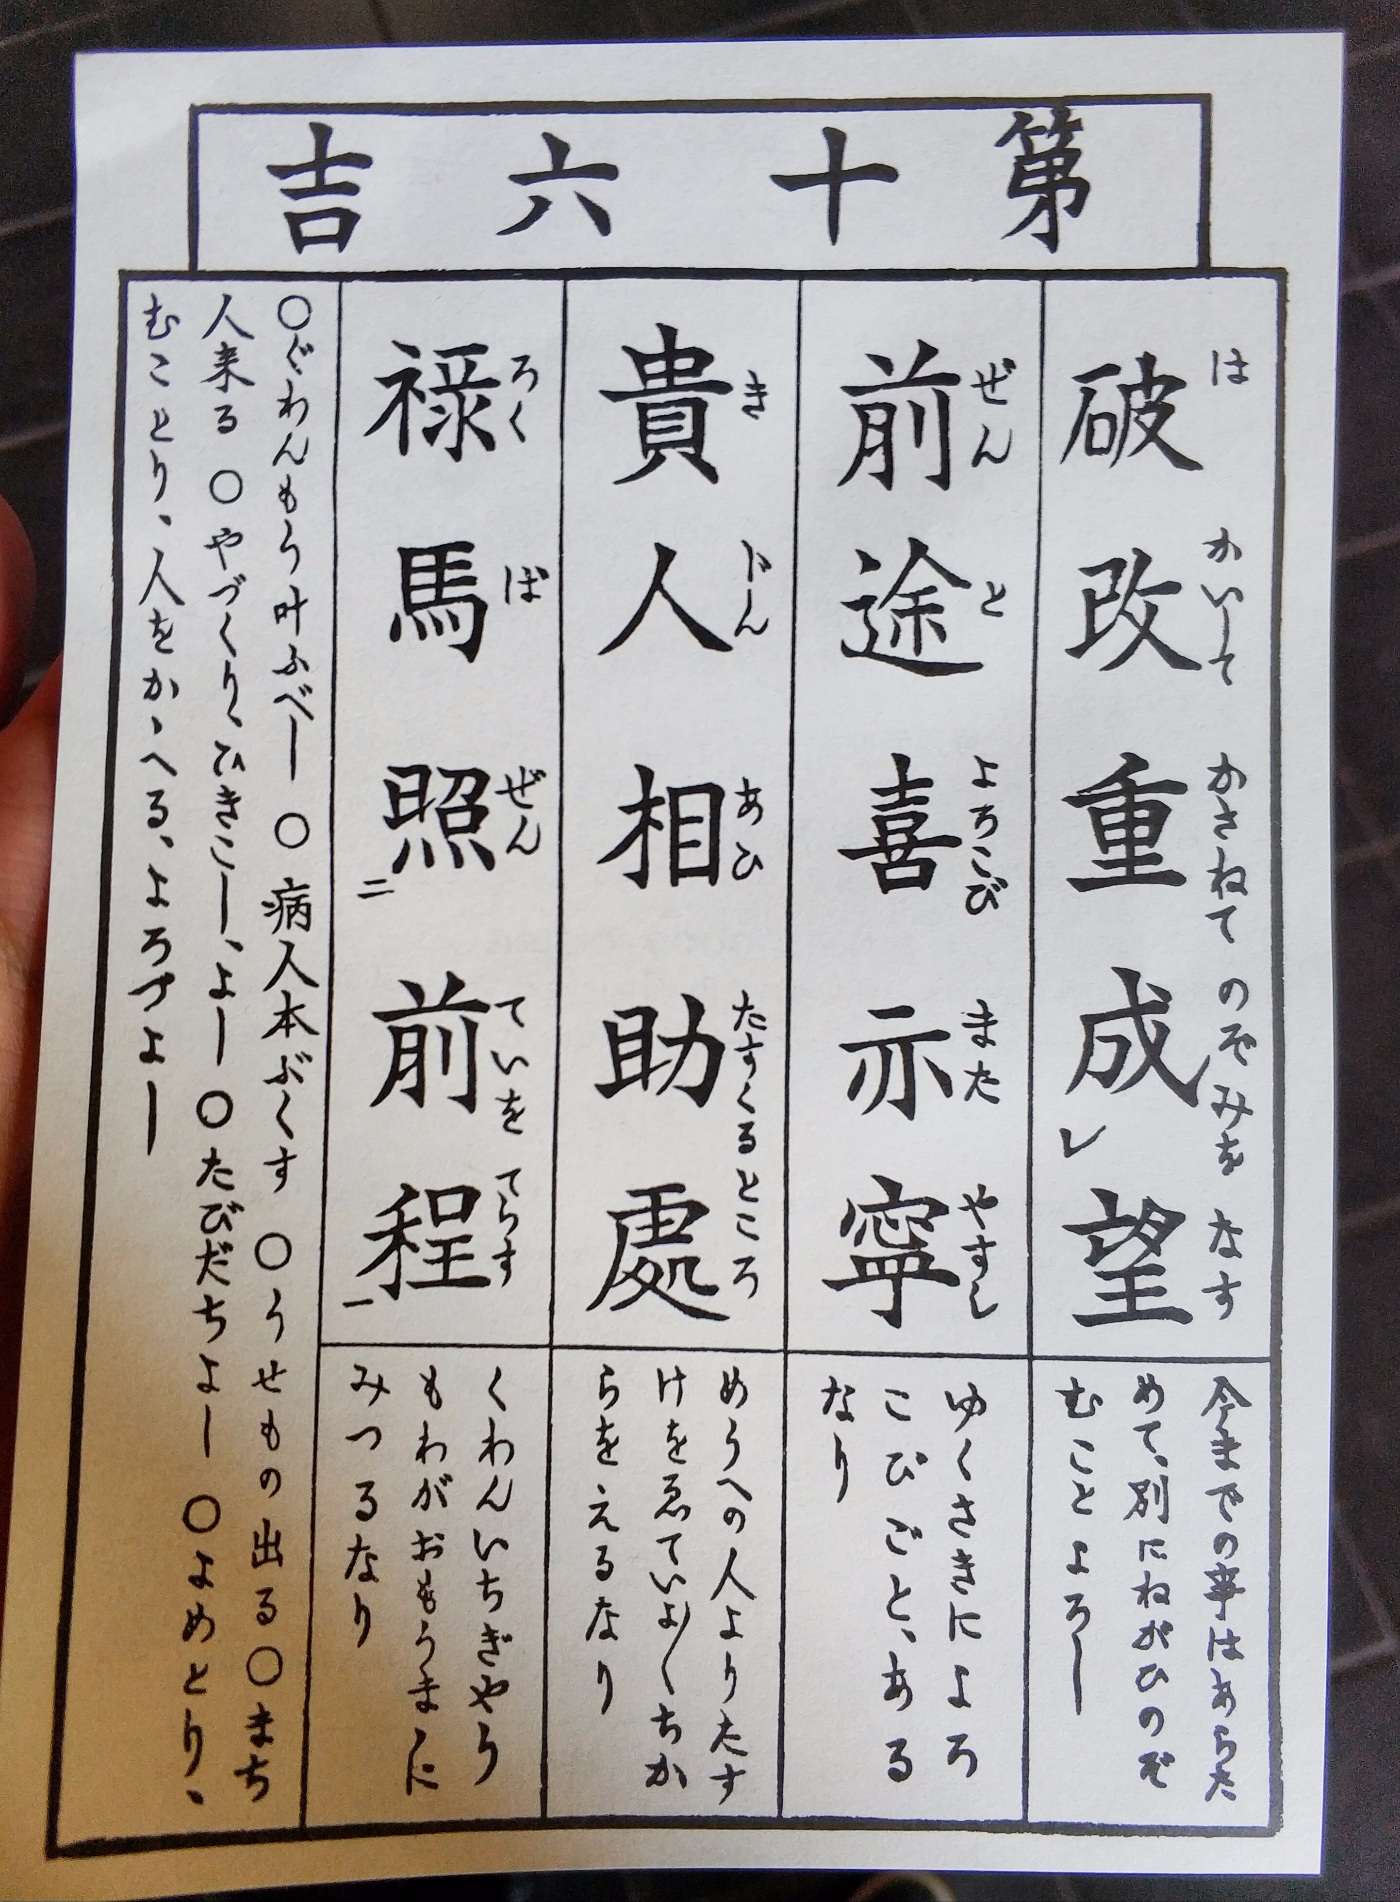 第十六吉
破改重成レ望
は かいして かさねて のぞみを なす
今までの事はあらた
めて、別にねがひのぞ
むことよろし
前途喜亦寧
ぜん と よろこび また やすし
ゆくさきによろ
こびごと、ある
なり
貴人相助處
き じん あひ たすくる ところ
めうへの人よりたす
けをゑていよ〳〵ちか
らをえるなり
禄馬照二前程一
ろく ば ぜん ていを てらす
くわんいちぎやう
もわがおもうまゝに
みつるなり
〇ぐわんもう叶ふべし〇病人本ぶくす〇うせもの出る〇まち
人来る〇やづくり、ひきこし、よし〇たびだちよし〇よめとり、
むことり、人をかゝへる、よろづよし